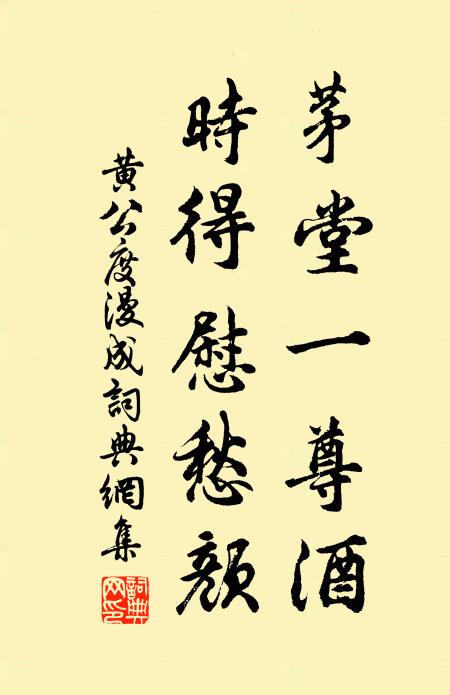 茅堂一尊酒
時得慰愁顏
黄公度漫成詞典網集
詞典網印